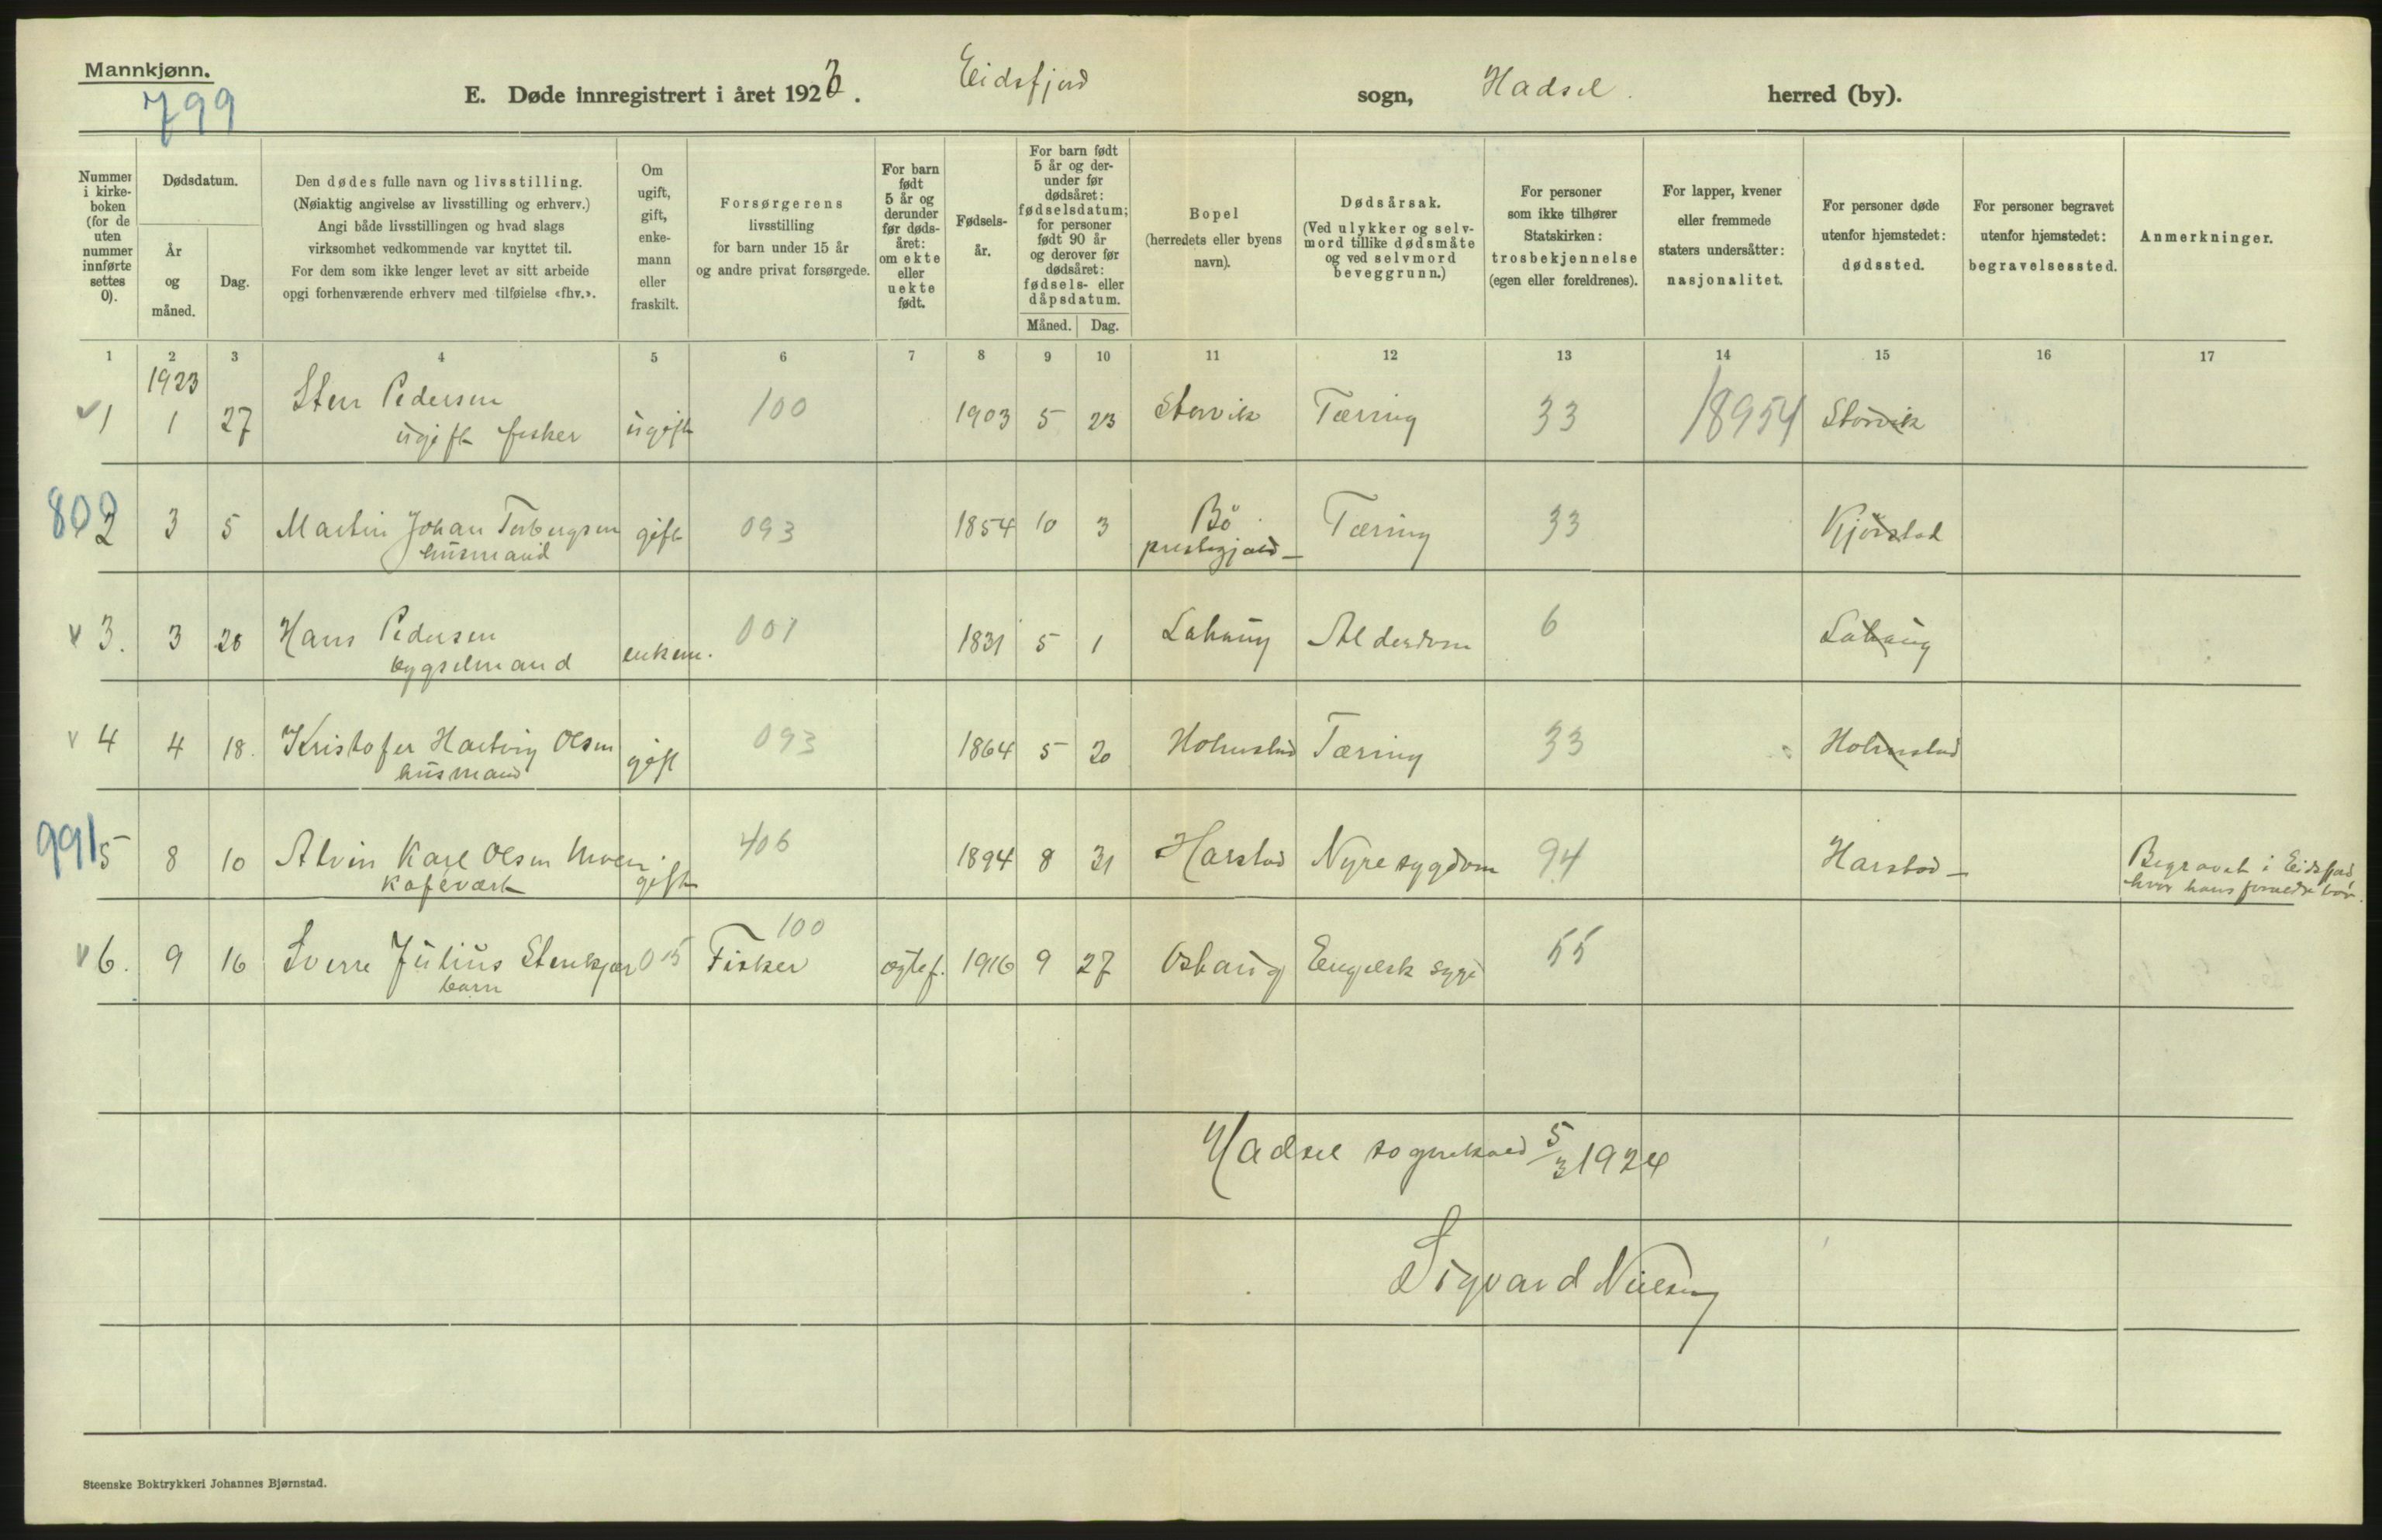 Mannkjønn.
799
E. Døde innregistrert i året 1923. Eidsfjord sogn, Hadsel. herred (by).
Nummer i kirke- boken (for de uten nummer innførte settes 0).
Dødsdatum.
År og måned.
Dag.
Den dødes fulle navn og livsstilling.
(Nøiaktig angivelse av livsstilling og erhverv.)
Angi både livsstillingen og hvad slags
virksomhet vedkommende var knyttet til.
For dem som ikke lenger levet av sitt arbeide
opgi forhenværende erhverv med tilføielse «fhv.».
Om ugift, gift, enke- mann eller fraskilt.
Forsørgerens
livsstilling
for barn under 15 år
og andre privat forsørgede.
For barn født 5 år og derunder før døds- året: om ekte eller uekte født.
Fødsels- år.
For barn født 5 år og der- under før dødsåret: fødselsdatum; for personer født 90 år og derover før dødsåret: fødsels- eller dåpsdatum.
Måned. Dag.
Bopel
(herredets eller byens
navn).
Dødsårsak.
(Ved ulykker og selv-
mord tillike dødsmåte
og ved selvmord
beveggrunn.)
For personer
som ikke tilhører
Statskirken:
trosbekjennelse
(egen eller foreldrenes).
For lapper, kvener
eller fremmede
staters undersåtter:
nasjonalitet.
For personer døde
utenfor hjemstedet:
dødssted.
For personer begravet
utenfor hjemstedet:
begravelsessted.
Anmerkninger.
1 2 3 4 5 6 7 8 9 10 11 12 13 14 15 16 17
1923
v 1 1 27 Sten Pedersen ugift 100 1903 5 23 Storvik Tæring 33 18954 Storvik
ugift fisker
802 3 5 Martin Johan Torbergsen gift 093 1854 10 3 Bö Tæring 33 Kjörstad
husmand prestegjæld
v 3. 3 20 Hans Pedersen enkem. 001 1831 5 1 Lahaug Alderdom 6 Lahaug
bygselmand
v 4 4 18. Kristofer Hartvig Olsen gift 093 1864 5 20 Holmstad Tæring 33 Holmstad
husmand
991 5 8 10 Alvin Karl Olsen Moen gift 406 1894 8 31 Harstad Nyresygdom 94 Harstad Begravet i Eidsfjord
kafévært hvor hans forældre bor.
v 6. 9 16 Sverre Julius Stenkjær 015 Fisker 100 ægtef. 1916 9 27 Oshaug Engelsk syge 55
barn
Hadsel sognekald 5/3 1924
Sigvard Nielsen
Steenske Boktrykkeri Johannes Bjørnstad.